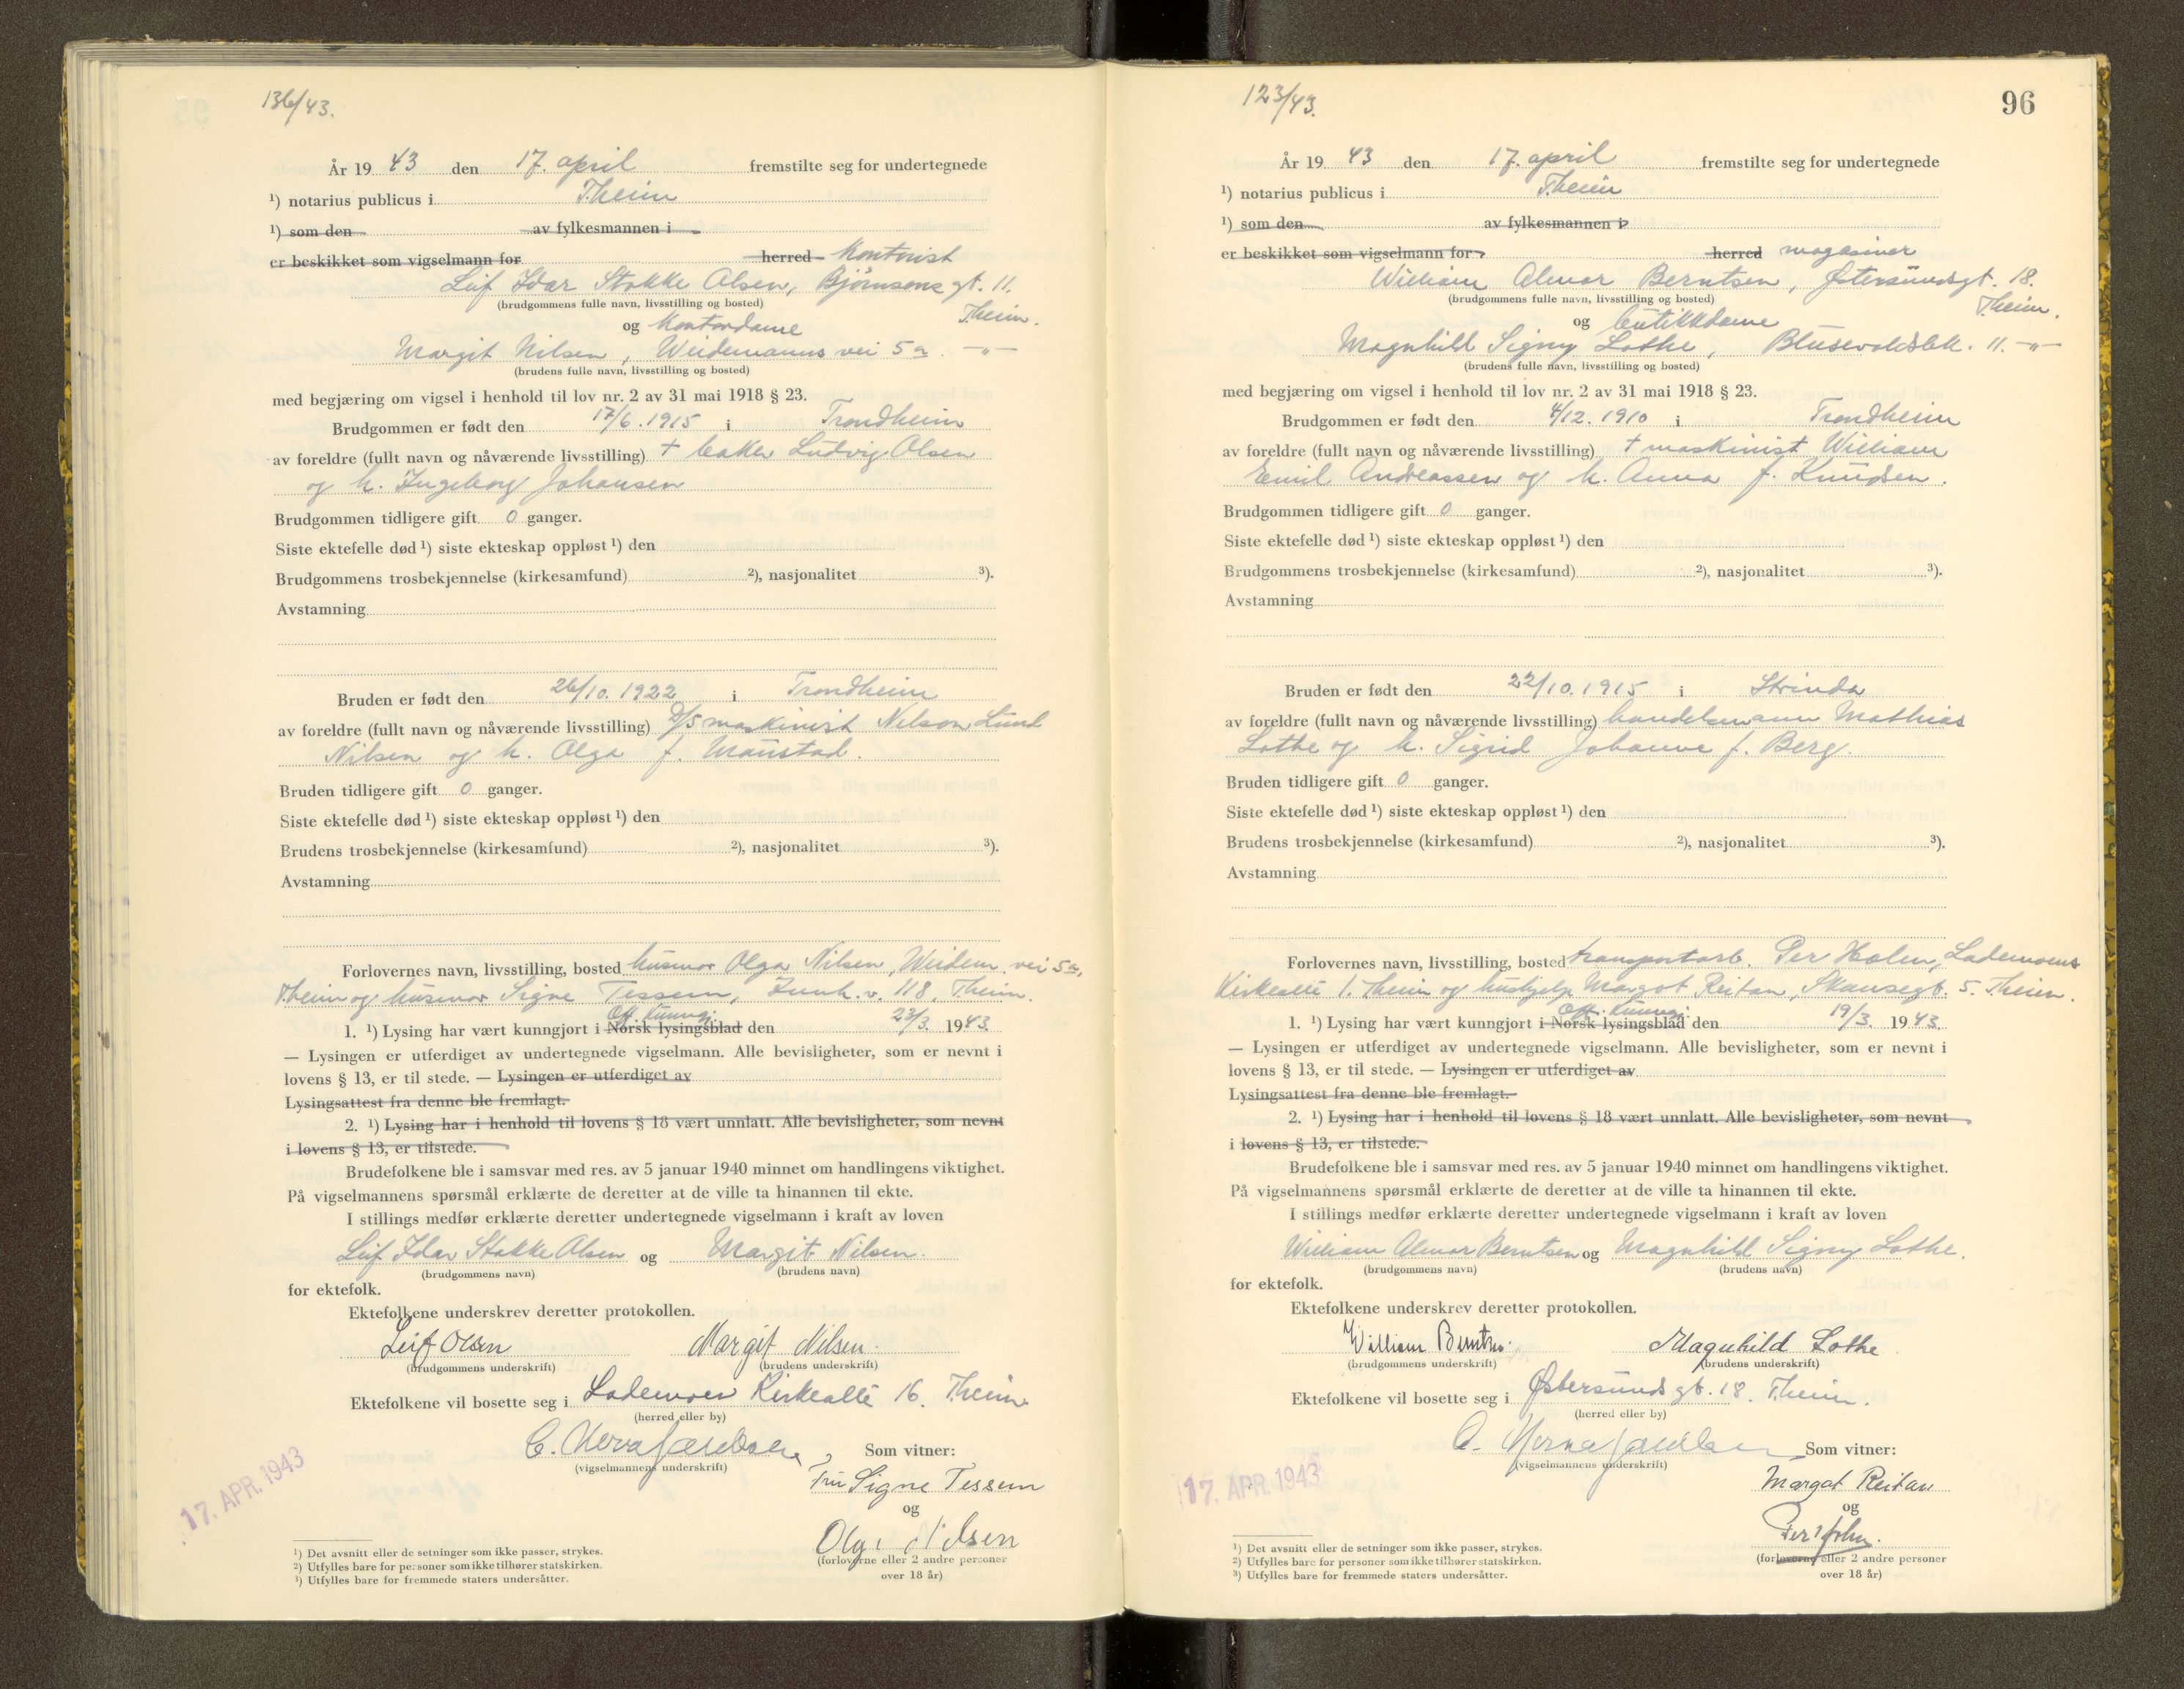 136/43.
År 19 43 den 17. april fremstilte seg for undertegnede
¹) notarius publicus i T.heim
¹) som den av fylkesmannen i
er beskikket som vigselmann for herred Kontorist
Leif Idar Stokke Olsen, Bjørnsons gt. 11.
(brudgommens fulle navn, livsstilling og bosted) T.heim.
og Kontordame
Margit Nilsen, Weidemanns vei 5a. -"-
(brudens fulle navn, livsstilling og bosted)
med begjæring om vigsel i henhold til lov nr. 2 av 31 mai 1918 § 23.
Brudgommen er født den 17/6. 1915 i Trondheim
av foreldre (fullt navn og nåværende livsstilling) + baker Ludvig Olsen
og h. Ingeborg Johansen
Brudgommen tidligere gift 0 ganger.
Siste ektefelle død ¹) siste ekteskap oppløst ¹) den
Brudgommens trosbekjennelse (kirkesamfund) ²), nasjonalitet ³).
Avstamning
Bruden er født den 26/10. 1922 i Trondheim
av foreldre (fullt navn og nåværende livsstilling) D/S maskinist Nelson Lund
Nilsen og h. Olga f. Maustad.
Bruden tidligere gift 0 ganger.
Siste ektefelle død ¹) siste ekteskap oppløst ¹) den
Brudens trosbekjennelse (kirkesamfund) ²), nasjonalitet ³).
Avstamning
Forlovernes navn, livsstilling, bosted husmor Olga Nilsen, Weidem. vei 5a,
T.heim og husmor Signe Tessem, Innh. v. 118, T.heim.
Off. Kunngj.
1. ¹) Lysing har vært kunngjort i Norsk lysingsblad den 23/3. 1943.
— Lysingen er utferdiget av undertegnede vigselmann. Alle bevisligheter, som er nevnt i
lovens § 13, er til stede. — Lysingen er utferdiget av
Lysingsattest fra denne ble fremlagt.
2. ¹) Lysing har i henhold til lovens § 18 vært unnlatt. Alle bevisligheter, som nevnt
i lovens § 13, er tilstede.
Brudefolkene ble i samsvar med res. av 5 januar 1940 minnet om handlingens viktighet.
På vigselmannens spørsmål erklærte de deretter at de ville ta hinannen til ekte.
I stillings medfør erklærte deretter undertegnede vigselmann i kraft av loven
Leif Idar Stokke Olsen og Margit Nilsen.
(brudgommens navn) (brudens navn)
for ektefolk.
Ektefolkene underskrev deretter protokollen.
Leif Olsen Margit Nilsen.
(brudgommens underskrift) (brudens underskrift)
Ektefolkene vil bosette seg i Lademoen Kirkeallé 16. T.heim.
(herred eller by)
(vigselmannens underskrift) Som vitner:
17. APR. 1943
Fru Signe Tessem
og
Olga Nilsen
(forloverne eller 2 andre personer
over 18 år)
¹) Det avsnitt eller de setninger som ikke passer, strykes.
²) Utfylles bare for personer som ikke tilhører statskirken.
³) Utfylles bare for fremmede staters undersåtter.
123/43.
96
År 19 43 den 17. april fremstilte seg for undertegnede
¹) notarius publicus i T.heim
¹) som den av fylkesmannen i
er beskikket som vigselmann for herred magasiner
William Almar Berntsen, Østersundsgt. 18.
(brudgommens fulle navn, livsstilling og bosted) T.heim.
og butikkdame
Magnhild Signy Lothe, Blusevoldsbk. 11. -"-
(brudens fulle navn, livsstilling og bosted)
med begjæring om vigsel i henhold til lov nr. 2 av 31 mai 1918 § 23.
Brudgommen er født den 4/12. 1910 i Trondheim
av foreldre (fullt navn og nåværende livsstilling) + maskinist William
Emil Andreassen og h. Anna f. Knudsen.
Brudgommen tidligere gift 0 ganger.
Siste ektefelle død ¹) siste ekteskap oppløst ¹) den
Brudgommens trosbekjennelse (kirkesamfund) ²), nasjonalitet ³).
Avstamning
Bruden er født den 22/10. 1915 i Strinda
av foreldre (fullt navn og nåværende livsstilling) handelsmann Mathias
Lothe og h. Sigrid Johanne f. Berg.
Bruden tidligere gift 0 ganger.
Siste ektefelle død ¹) siste ekteskap oppløst ¹) den
Brudens trosbekjennelse (kirkesamfund) ²), nasjonalitet ³).
Avstamning
Forlovernes navn, livsstilling, bosted transportarb. Per Holen, Lademoens
Kirkeallé 1. T.heim og hushjelp Margot Reitan, Skansegt. 5. T.heim.
Off. Kunngj.
1. ¹) Lysing har vært kunngjort i Norsk lysingsblad den 19/3. 1943.
— Lysingen er utferdiget av undertegnede vigselmann. Alle bevisligheter, som er nevnt i
lovens § 13, er til stede. — Lysingen er utferdiget av
Lysingsattest fra denne ble fremlagt.
2. ¹) Lysing har i henhold til lovens § 18 vært unnlatt. Alle bevisligheter, som nevnt
i lovens § 13, er tilstede.
Brudefolkene ble i samsvar med res. av 5 januar 1940 minnet om handlingens viktighet.
På vigselmannens spørsmål erklærte de deretter at de ville ta hinannen til ekte.
I stillings medfør erklærte deretter undertegnede vigselmann i kraft av loven
William Almar Berntsen og Magnhild Signy Lothe.
(brudgommens navn) (brudens navn)
for ektefolk.
Ektefolkene underskrev deretter protokollen.
William Berntsen Magnhild Lothe
(brudgommens underskrift) (brudens underskrift)
Ektefolkene vil bosette seg i Østersunds gt. 18. T.heim.
(herred eller by)
(vigselmannens underskrift) Som vitner:
17. APR. 1943
Margot Reitan
og
(forloverne eller 2 andre personer
over 18 år)
¹) Det avsnitt eller de setninger som ikke passer, strykes.
²) Utfylles bare for personer som ikke tilhører statskirken.
³) Utfylles bare for fremmede staters undersåtter.